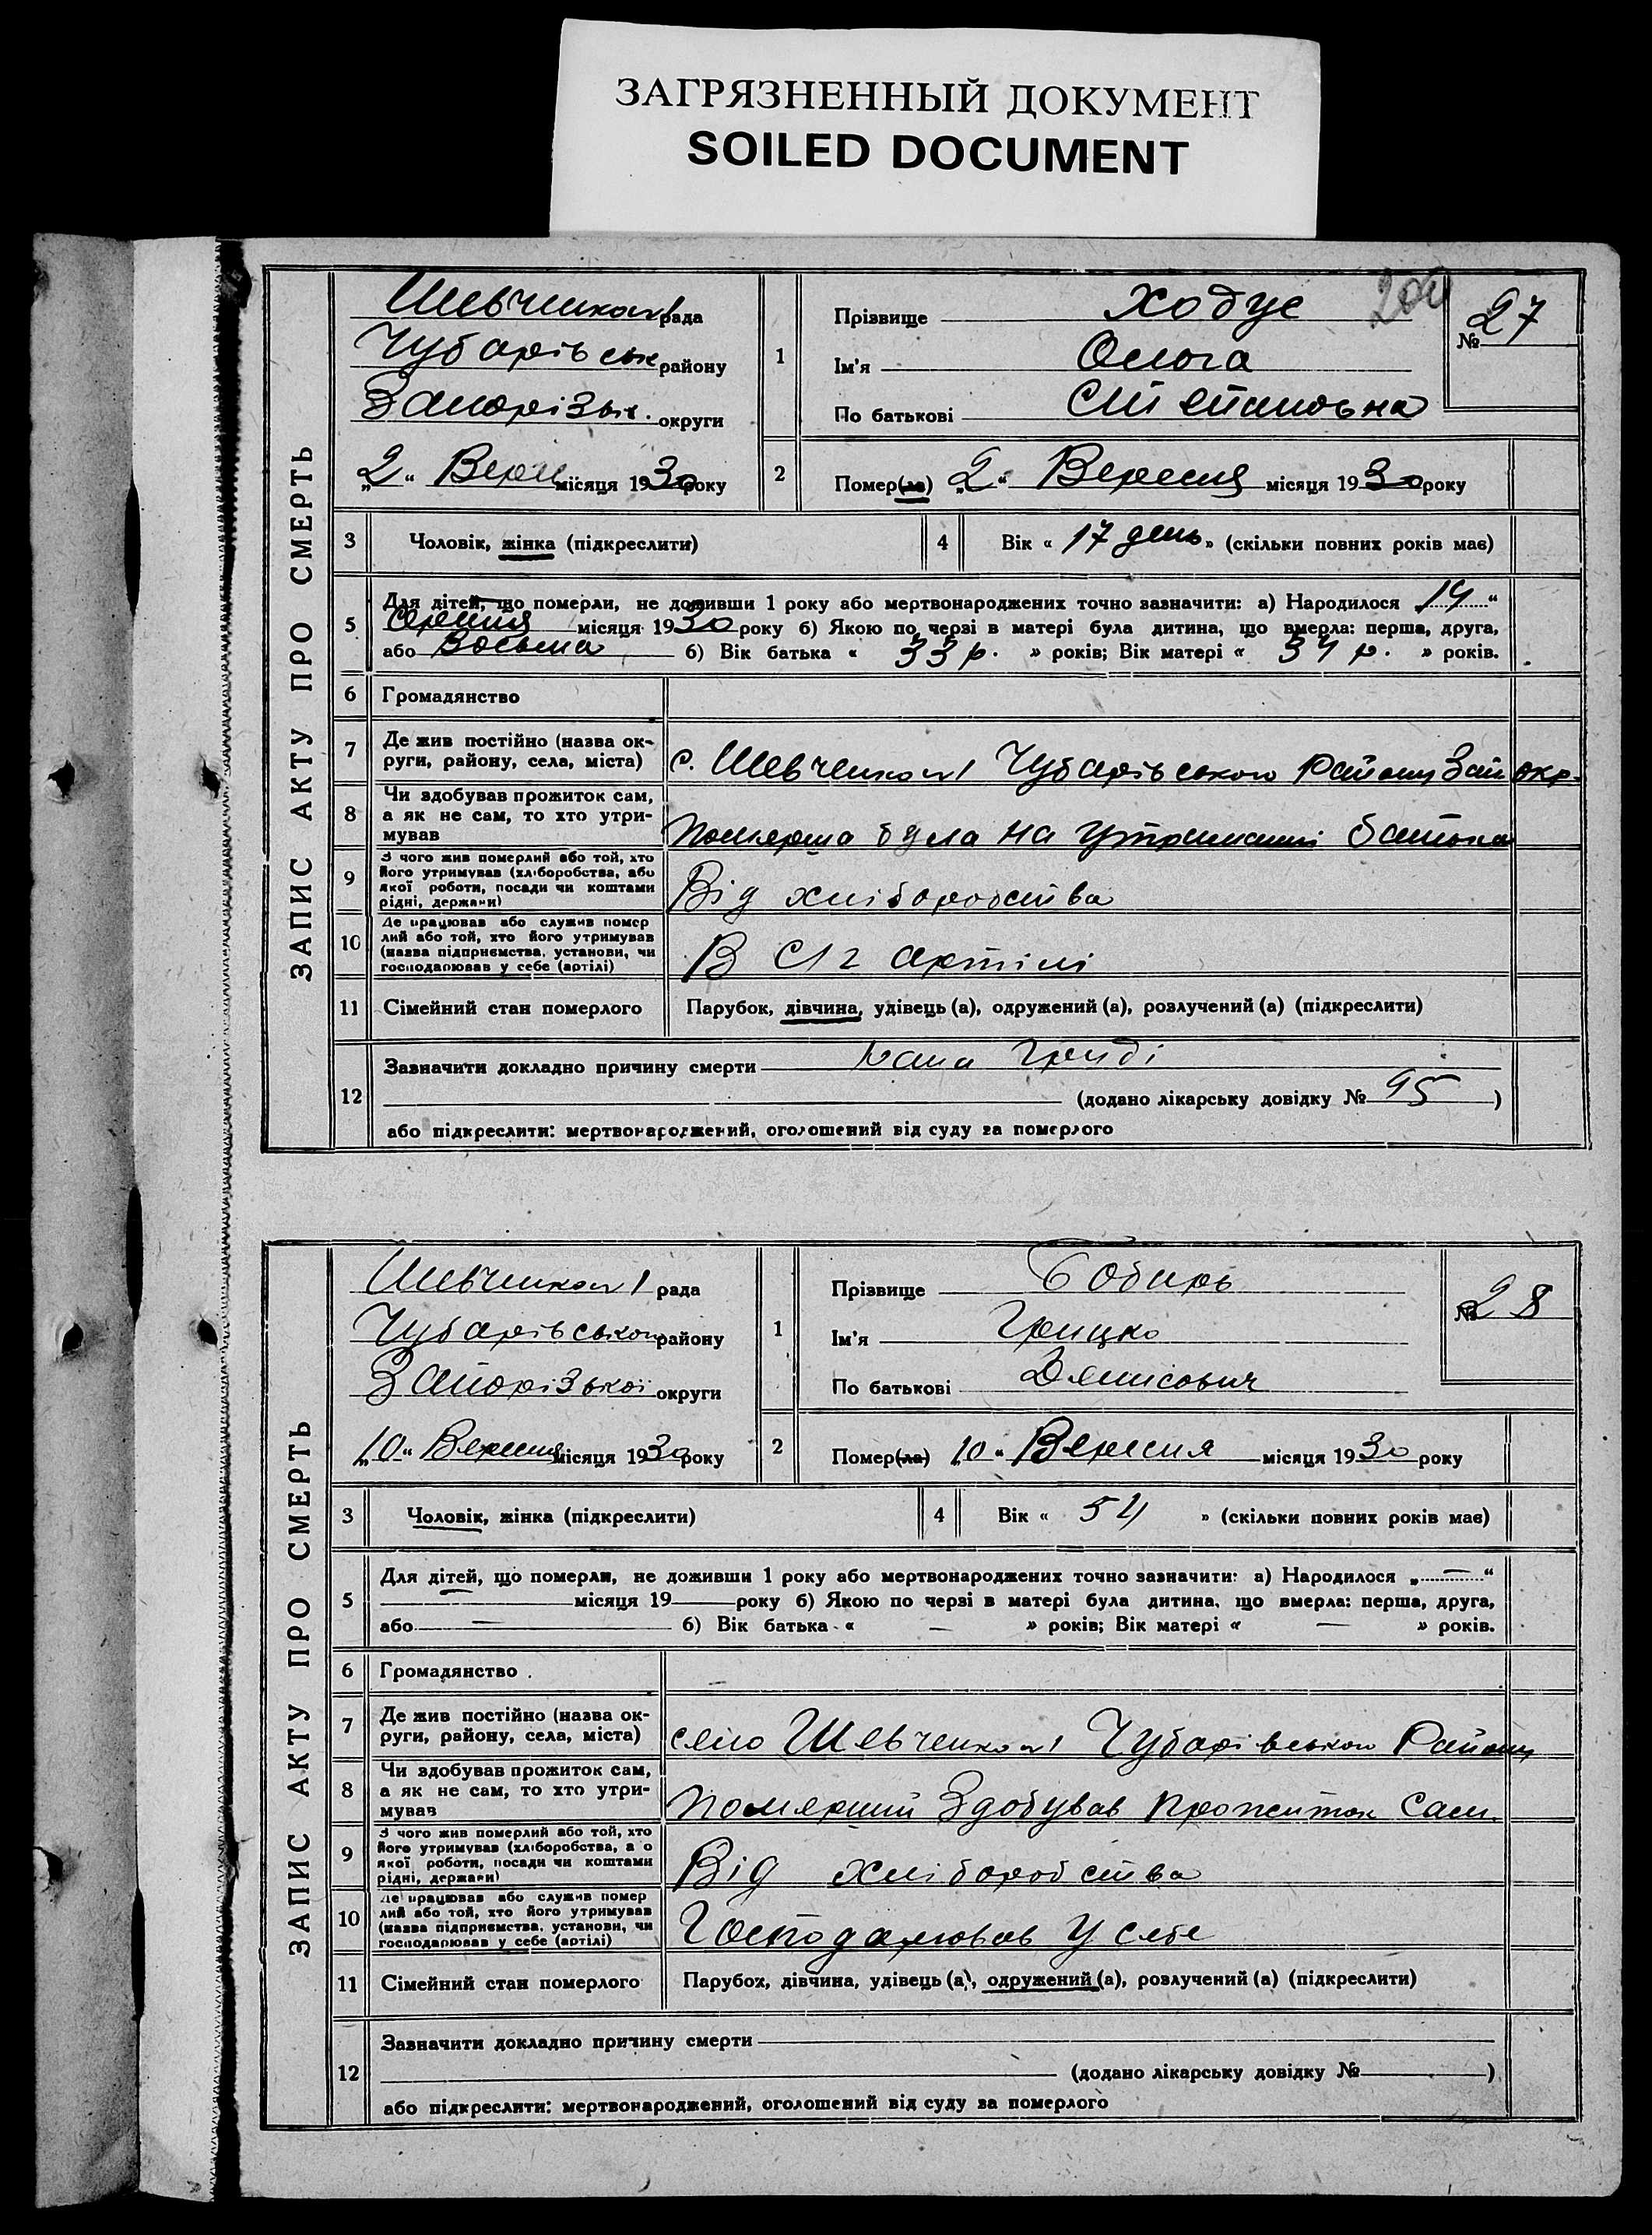 ЗАГРЯЗНЕННЫЙ ДОКУМЕНТ
SOILED DOCUMENT
ЗАПИС АКТУ ПРО СМЕРТЬ
Шевченков1 рада
Чубарівськ району
Запорізьк. округи
„2“ Верес місяця 1930 року
1
Прізвище Ходус
Ім'я Ольга
По батькові Степановна
№ 27
2
Помер(ла) „2“ Вересня місяця 1930 року
3 Чоловік, жінка (підкреслити)
4 Вік « 17 день » (скільки повних років має)
5 Для дітей, що померли, не доживши 1 року або мертвонароджених точно зазначити: а) Народилося „14“
Серпня місяця 1930 року б) Якою по черзі в матері була дитина, що вмерла: перша, друга,
або Восьма б) Вік батька « 33 р. » років; Вік матері « 34 р. » років.
6 Громадянство
7 Де жив постійно (назва округи, району, села, міста)
с. Шевченков1 Чубарівського Району Зап окр.
8 Чи здобував прожиток сам,
а як не сам, то хто утри-
мував
Померша була на утриманні батька
9 З чого жив померлий або той, хто
його утримував (хліборобства, або
якої роботи, посади чи коштами
рідні, держави)
Від хліборобства
10 Де працював або служив помер
лий або той, хто його утримував
(назва підприємства, установи, чи
господарював у себе (артілі)
В С/г артілі
11 Сімейний стан померлого
Парубок, дівчина, удівець (а), одружений (а), розлучений (а) (підкреслити)
12 Зазначити докладно причину смерти груді
(додано лікарську довідку № 95 )
або підкреслити: мертвонароджений, оголошений від суду за померлого
ЗАПИС АКТУ ПРО СМЕРТЬ
Шевченков1 рада
Чубарівського району
Запорізької округи
„10“ Вересня місяця 1930 року
1
Прізвище Бобирь
Ім'я Грицко
По батькові Денисович
№ 28
2
Помер(ла) „10“ Вересня місяця 1930 року
3 Чоловік, жінка (підкреслити)
4 Вік « 54 » (скільки повних років має)
5 Для дітей, що померли, не доживши 1 року або мертвонароджених точно зазначити: а) Народилося „—“
місяця 19 року б) Якою по черзі в матері була дитина, що вмерла: перша, друга,
або — б) Вік батька « — » років; Вік матері « — » років.
6 Громадянство
7 Де жив постійно (назва ок-
руги, району, села, міста)
село Шевченков1 Чубарівського Району
8 Чи здобував прожиток сам,
а як не сам, то хто утри-
мував
Померший Здобував прожиток Сам.
9 З чого жив померлий або той, хто
його утримував (хліборобства, а о
якої роботи, посади чи коштами
рідні, держави)
Від хліборобства
10 Де працював або служив помер
лий або той, хто його утримував
(назва підприємства, установи, чи
господарював у себе (артілі)
Господарював У себе
11 Сімейний стан померлого
Парубок, дівчина, удівець (а), одружений (а), розлучений (а) (підкреслити)
12 Зазначити докладно причину смерти
(додано лікарську довідку № )
або підкреслити: мертвонароджений, оголошений від суду за померлого